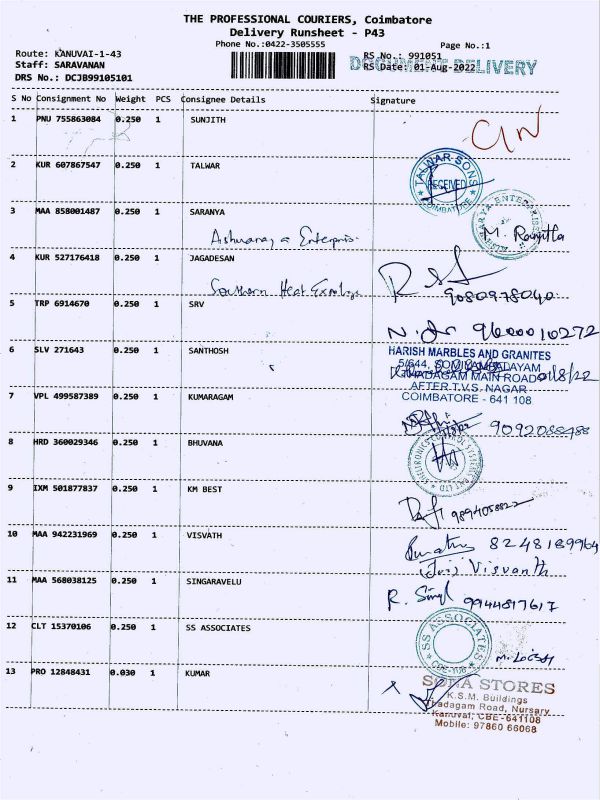 THE PROFESSIONAL COURIERS, Coimbatore
Delivery Runsheet - P43
Phone No.:0422-3505555
Page No.:1
Route: KANUVAI-1-43
RS No.: 991051
Staff: SARAVANAN
RS Date: 01-Aug-2022
DOCUMENT DELIVERY
DRS No.: DCJB99105101
S No Consignment No Weight PCS Consignee Details Signature
1 PNU 755863084 0.250 1 SUNJITH
2 KUR 607867547 0.250 1 TALWAR
TALWAR SONS
RECEIVED
COIMBATORE
3 MAA 858001487 0.250 1 SARANYA
4 KUR 527176418 0.250 1 JAGADESAN
Southern Heat
9080978040
5 TRP 6914670 0.250 1 SRV
9600010272
6 SLV 271643 0.250 1 SANTHOSH
HARISH MARBLES AND GRANITES
5/644, SOMAYAMPALAYAM
THADAGAM MAIN ROAD
AFTER T.V.S. NAGAR
COIMBATORE - 641 108
7 VPL 499587389 0.250 1 KUMARAGAM
9092088488
8 HRD 360029346 0.250 1 BHUVANA
9 IXM 501877837 0.250 1 KM BEST
9894058822
10 MAA 942231969 0.250 1 VISVATH
8248189964
Visvanth
11 MAA 568038125 0.250 1 SINGARAVELU
R. Singl 9944817617
12 CLT 15370106 0.250 1 SS ASSOCIATES
SS ASSOCIATES
CBE-108
13 PRO 12848431 0.030 1 KUMAR
SONA STORES
K.S.M. Buildings
Thadagam Road, Nursary
Kanuvai, CBE-641108
Mobile: 97860 66068